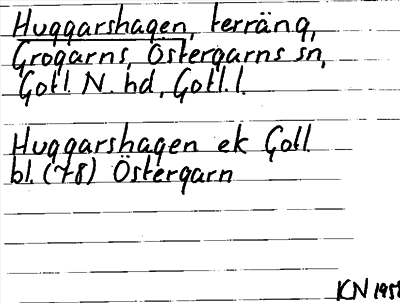 Huggarshagen, terräng,
Grogarns, Östergarns sn,
Gotl. N. hd, Gotl. l.
Huggarshagen ek Gotl.
bl. (78) Östergarn
KN 1951